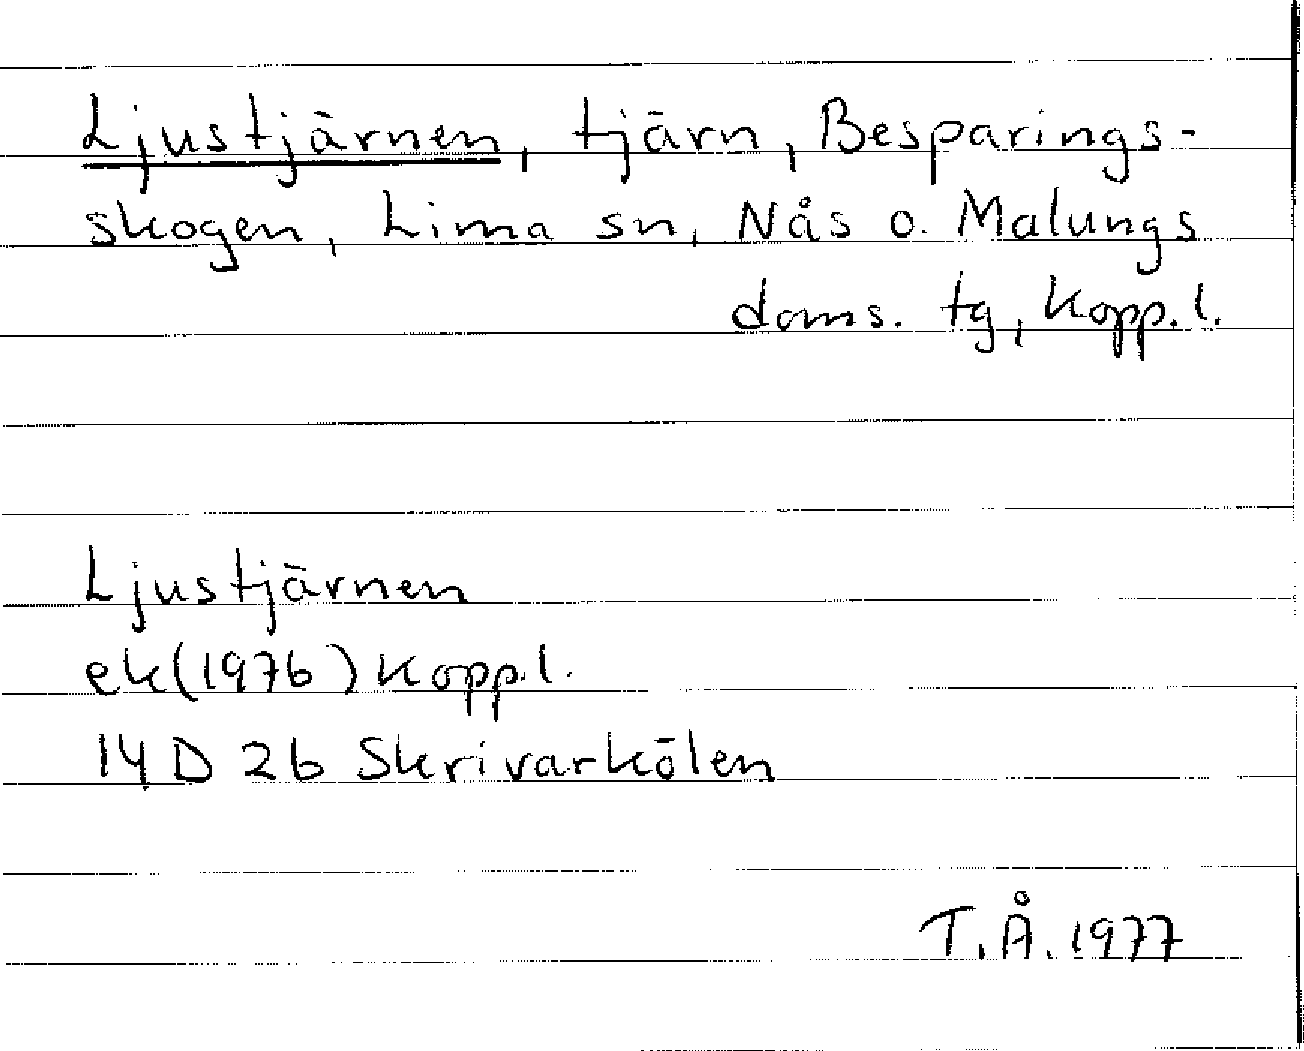 Ljustjärnen, tjärn, Besparings-
skogen, Lima sn, Nås o. Malungs
doms. tg, Kopp.l.
Ljustjärnen
ek(1976) Kopp.l.
14 D 2b Skrivarkölen
T.Å. 1977